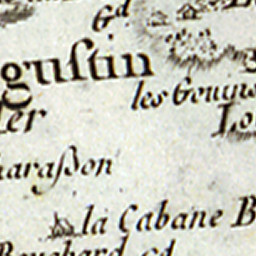 Gd
guſtin
les Gouins
Lo
er
araßon
la Cabane B
Bouchard gd